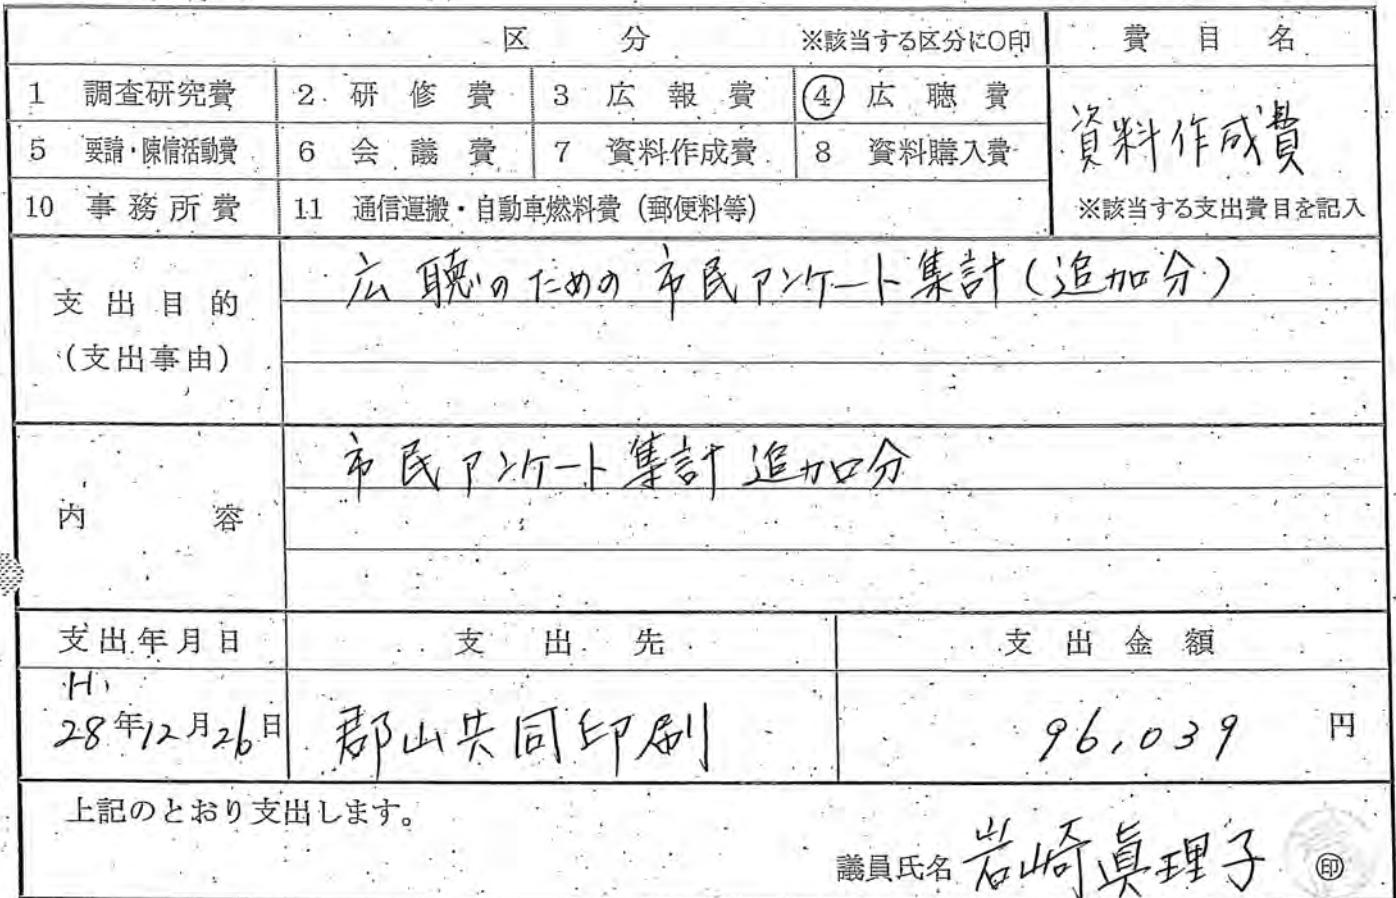 区 分 ※該当する区分に○印 費 目 名
1 調査研究費 2 研 修 費 3 広 報 費 ④ 広 聴 費
5 要請・陳情活動費 6 会 議 費 7 資料作成費 8 資料購入費
資料作成費
10 事務所費 11 通信運搬・自動車燃料費(郵便料等) ※該当する支出費目を記入
支出目的
(支出事由)
広聴のための市民アンケート集計(追加分)
内 容
市民アンケート集計追加分
支出年月日 支 出 先 支 出 金 額
H.
28年12月26日 郡山共同印刷 96,039 円
上記のとおり支出します。
議員氏名 岩崎眞理子 ㊞